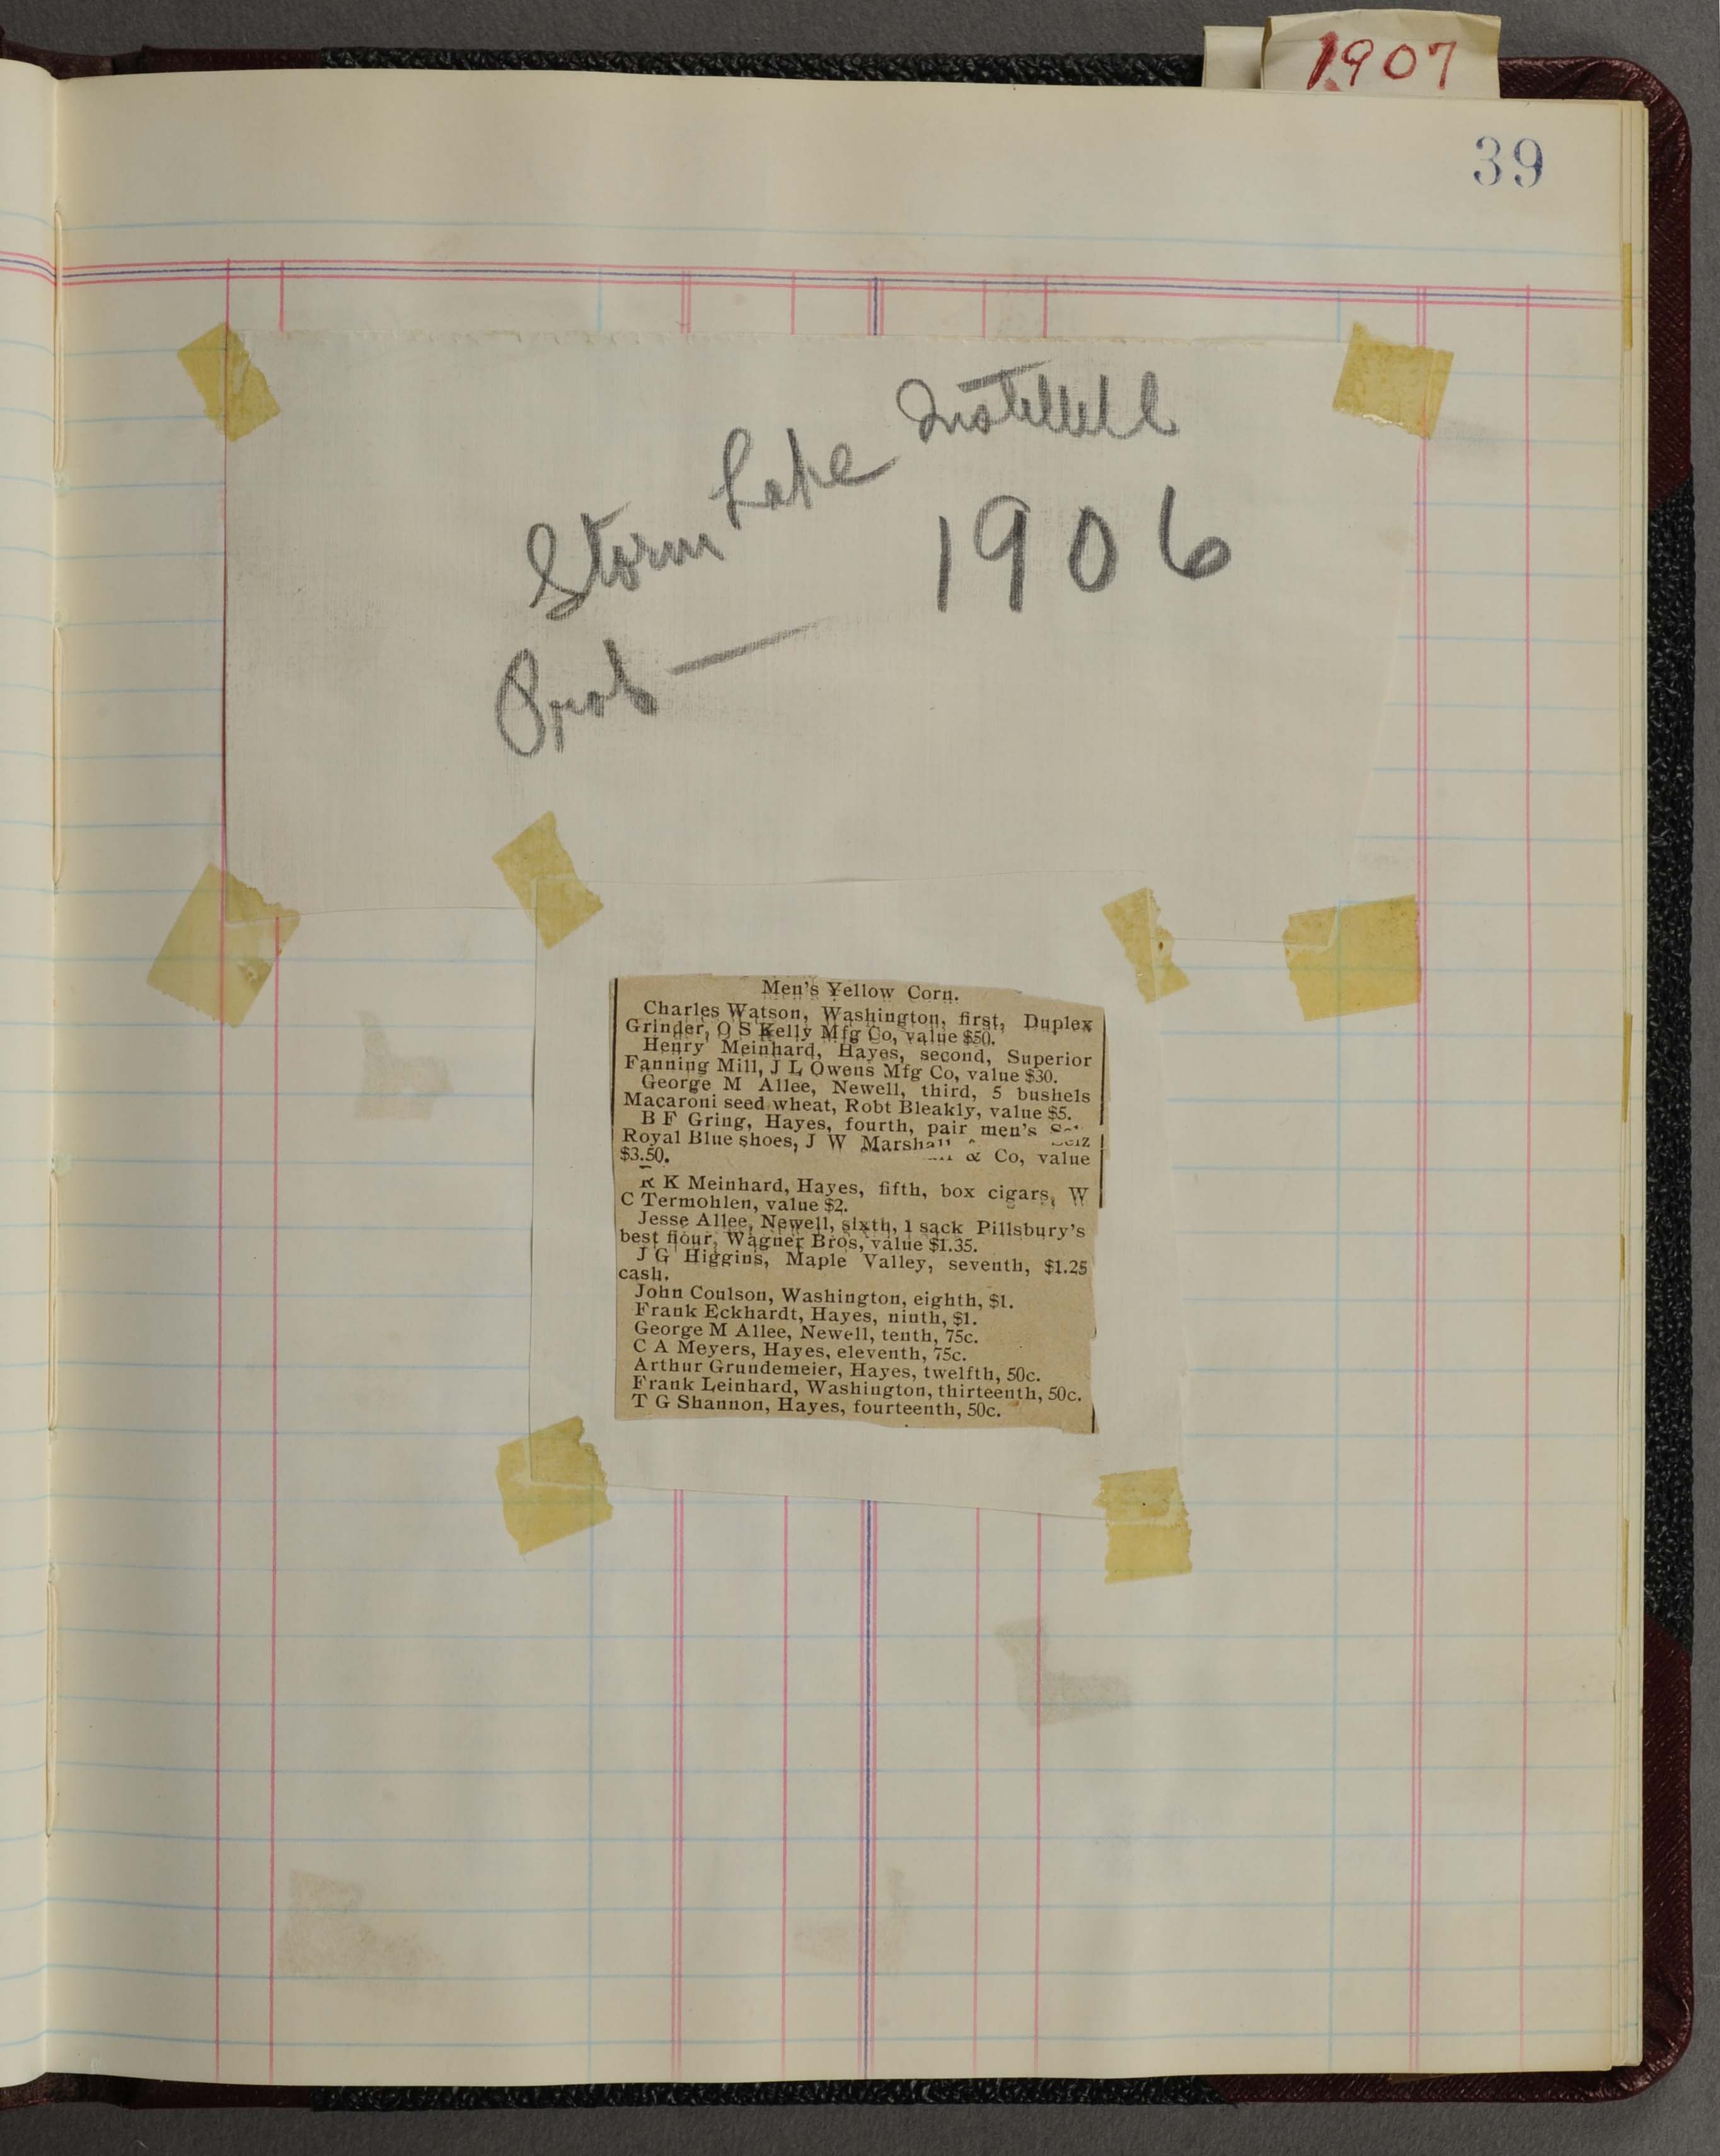 1907
39
Storm Lake Institute
Prob — 1906
Men's Yellow Corn.
Charles Watson, Washington, first, Duplex
Grinder, O S Kelly Mfg Co, value $50.
Henry Meinhard, Hayes, second, Superior
Fanning Mill, J L Owens Mfg Co, value $30.
George M Allee, Newell, third, 5 bushels
Macaroni seed wheat, Robt Bleakly, value $5.
B F Gring, Hayes, fourth, pair men's
Royal Blue shoes, J W Marshall & Co, value
$3.50.
R K Meinhard, Hayes, fifth, box cigars, W
C Termohlen, value $2.
Jesse Allee, Newell, sixth, 1 sack Pillsbury's
best flour, Wagner Bros, value $1.35.
J G Higgins, Maple Valley, seventh, $1.25
cash.
John Coulson, Washington, eighth, $1.
Frank Eckhardt, Hayes, ninth, $1.
George M Allee, Newell, tenth, 75c.
C A Meyers, Hayes, eleventh, 75c.
Arthur Grundemeier, Hayes, twelfth, 50c.
Frank Leinhard, Washington, thirteenth, 50c.
T G Shannon, Hayes, fourteenth, 50c.